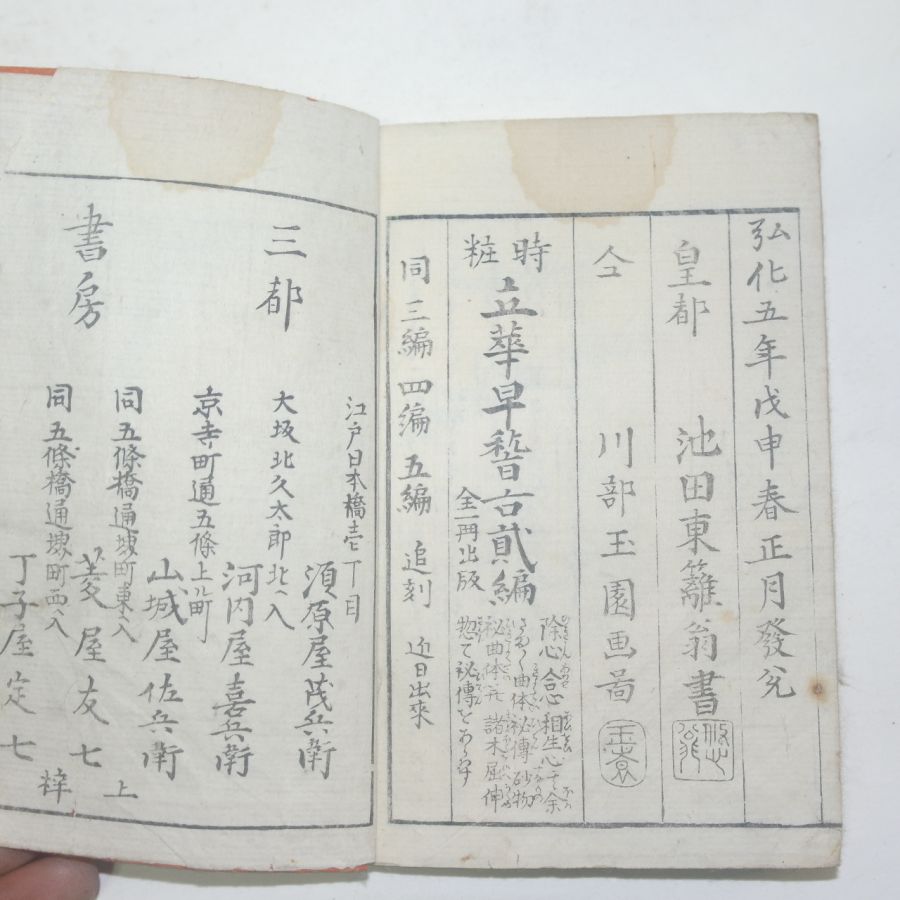 弘化五年戊申春正月發兌
皇都 池田東籬翁書
仝 川部玉園画啚
玉園
時粧
立華早稽古貳編
全一冊出版
除心合心相生心其余
曲体秘傳砂物
秘曲体 諸木屈伸
惣て秘傳を
同三編 四編 五編 追刻 近日出來
三都
書房
江戸日本橋壱丁目
須原屋茂兵衛
大坂北久太郎北ヘ入
河内屋喜兵衛
京寺町通五條上ル町
山城屋佐兵衛
同五條橋通堺町東ヘ入
菱屋友七
同五條橋通堺町西ヘ入
丁子屋定七
上梓